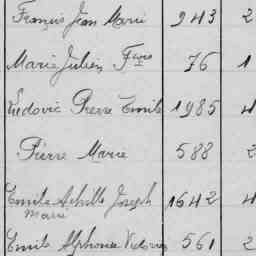 François Jean Marie 943 2
Marie Julien Fçois 76 1
Ludovic Pierre Emile 1985 4
Pierre Marie 588 2
Emile Achille Joseph 1642 4
Marie
Emile Alphonse Victorien 561 2